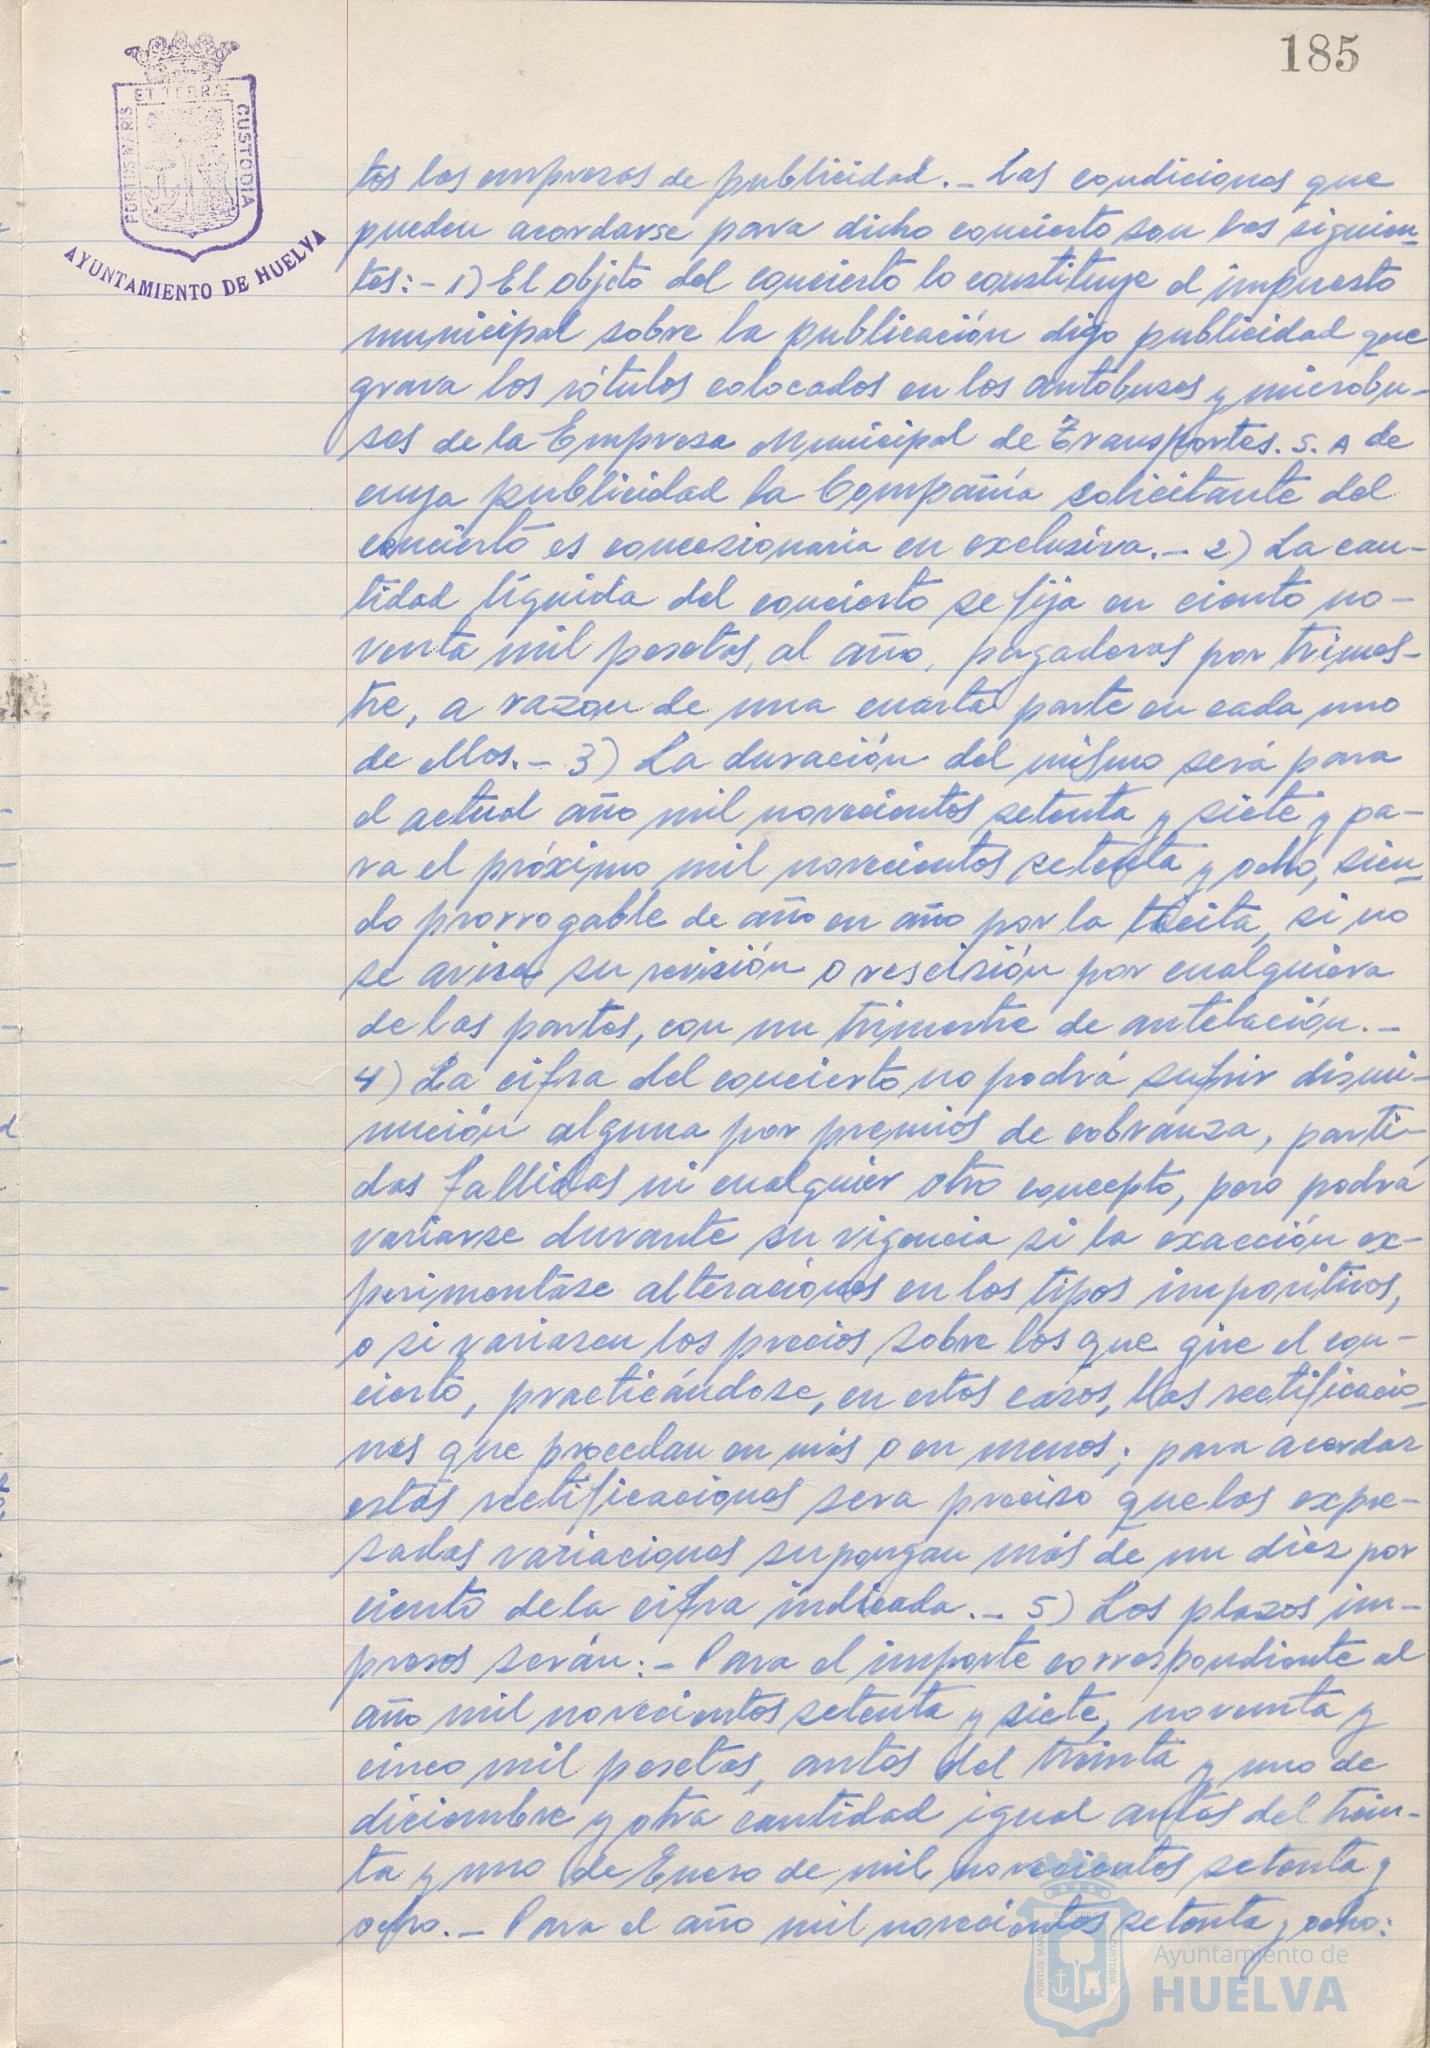 185
PORTUS MARIS ET TERRÆ CUSTODIA
AYUNTAMIENTO DE HUELVA
tos las empresas de publicidad.- Las condiciones que
pueden acordarse para dicho concierto son las siguien-
tes:- 1) El objeto del concierto lo constituye el impuesto
municipal sobre la publicación digo publicidad que
grava los rótulos colocados en los autobuses y microbu-
ses de la Empresa Municipal de Transportes. S. A de
cuya publicidad la Compañía solicitante del
concierto es concesionaria en exclusiva.- 2) La can-
tidad líquida del concierto se fija en ciento no-
venta mil pesetas, al año, pagaderas por trimes-
tre, a razon de una cuarta parte en cada uno
de ellos.- 3) La duración del mismo será para
el actual año mil novecientos setenta y siete y pa-
ra el próximo mil novecientos setenta y ocho, sien-
do prorrogable de año en año por la tácita, si no
se avisa su revisión o rescisión por cualquiera
de las partes, con un trimestre de antelación.-
4) La cifra del concierto no podrá sufrir dismi-
nución alguna por premios de cobranza, parti-
das fallidas ni cualquier otro concepto, pero podrá
variarse durante su vigencia si la exacción ex-
perimentase alteraciones en los tipos impositivos,
o si variasen los precios sobre los que gire el con-
cierto, practicándose, en estos casos, las rectificacio-
nes que procedan en más o en menos; para acordar
estas rectificaciones sera preciso que las expre-
sadas variaciones supongan más de un diez por
ciento de la cifra indicada.- 5) Los plazos im-
presos serán:- Para el importe correspondiente al
año mil novecientos setenta y siete, noventa y
cinco mil pesetas, antes del treinta y uno de
diciembre y otra cantidad igual antes del trein-
ta y uno de Enero de mil novecientos setenta y
ocho.- Para el año mil novecientos setenta y ocho:
PORTUS MARIS CUSTODIA
Ayuntamiento de
HUELVA